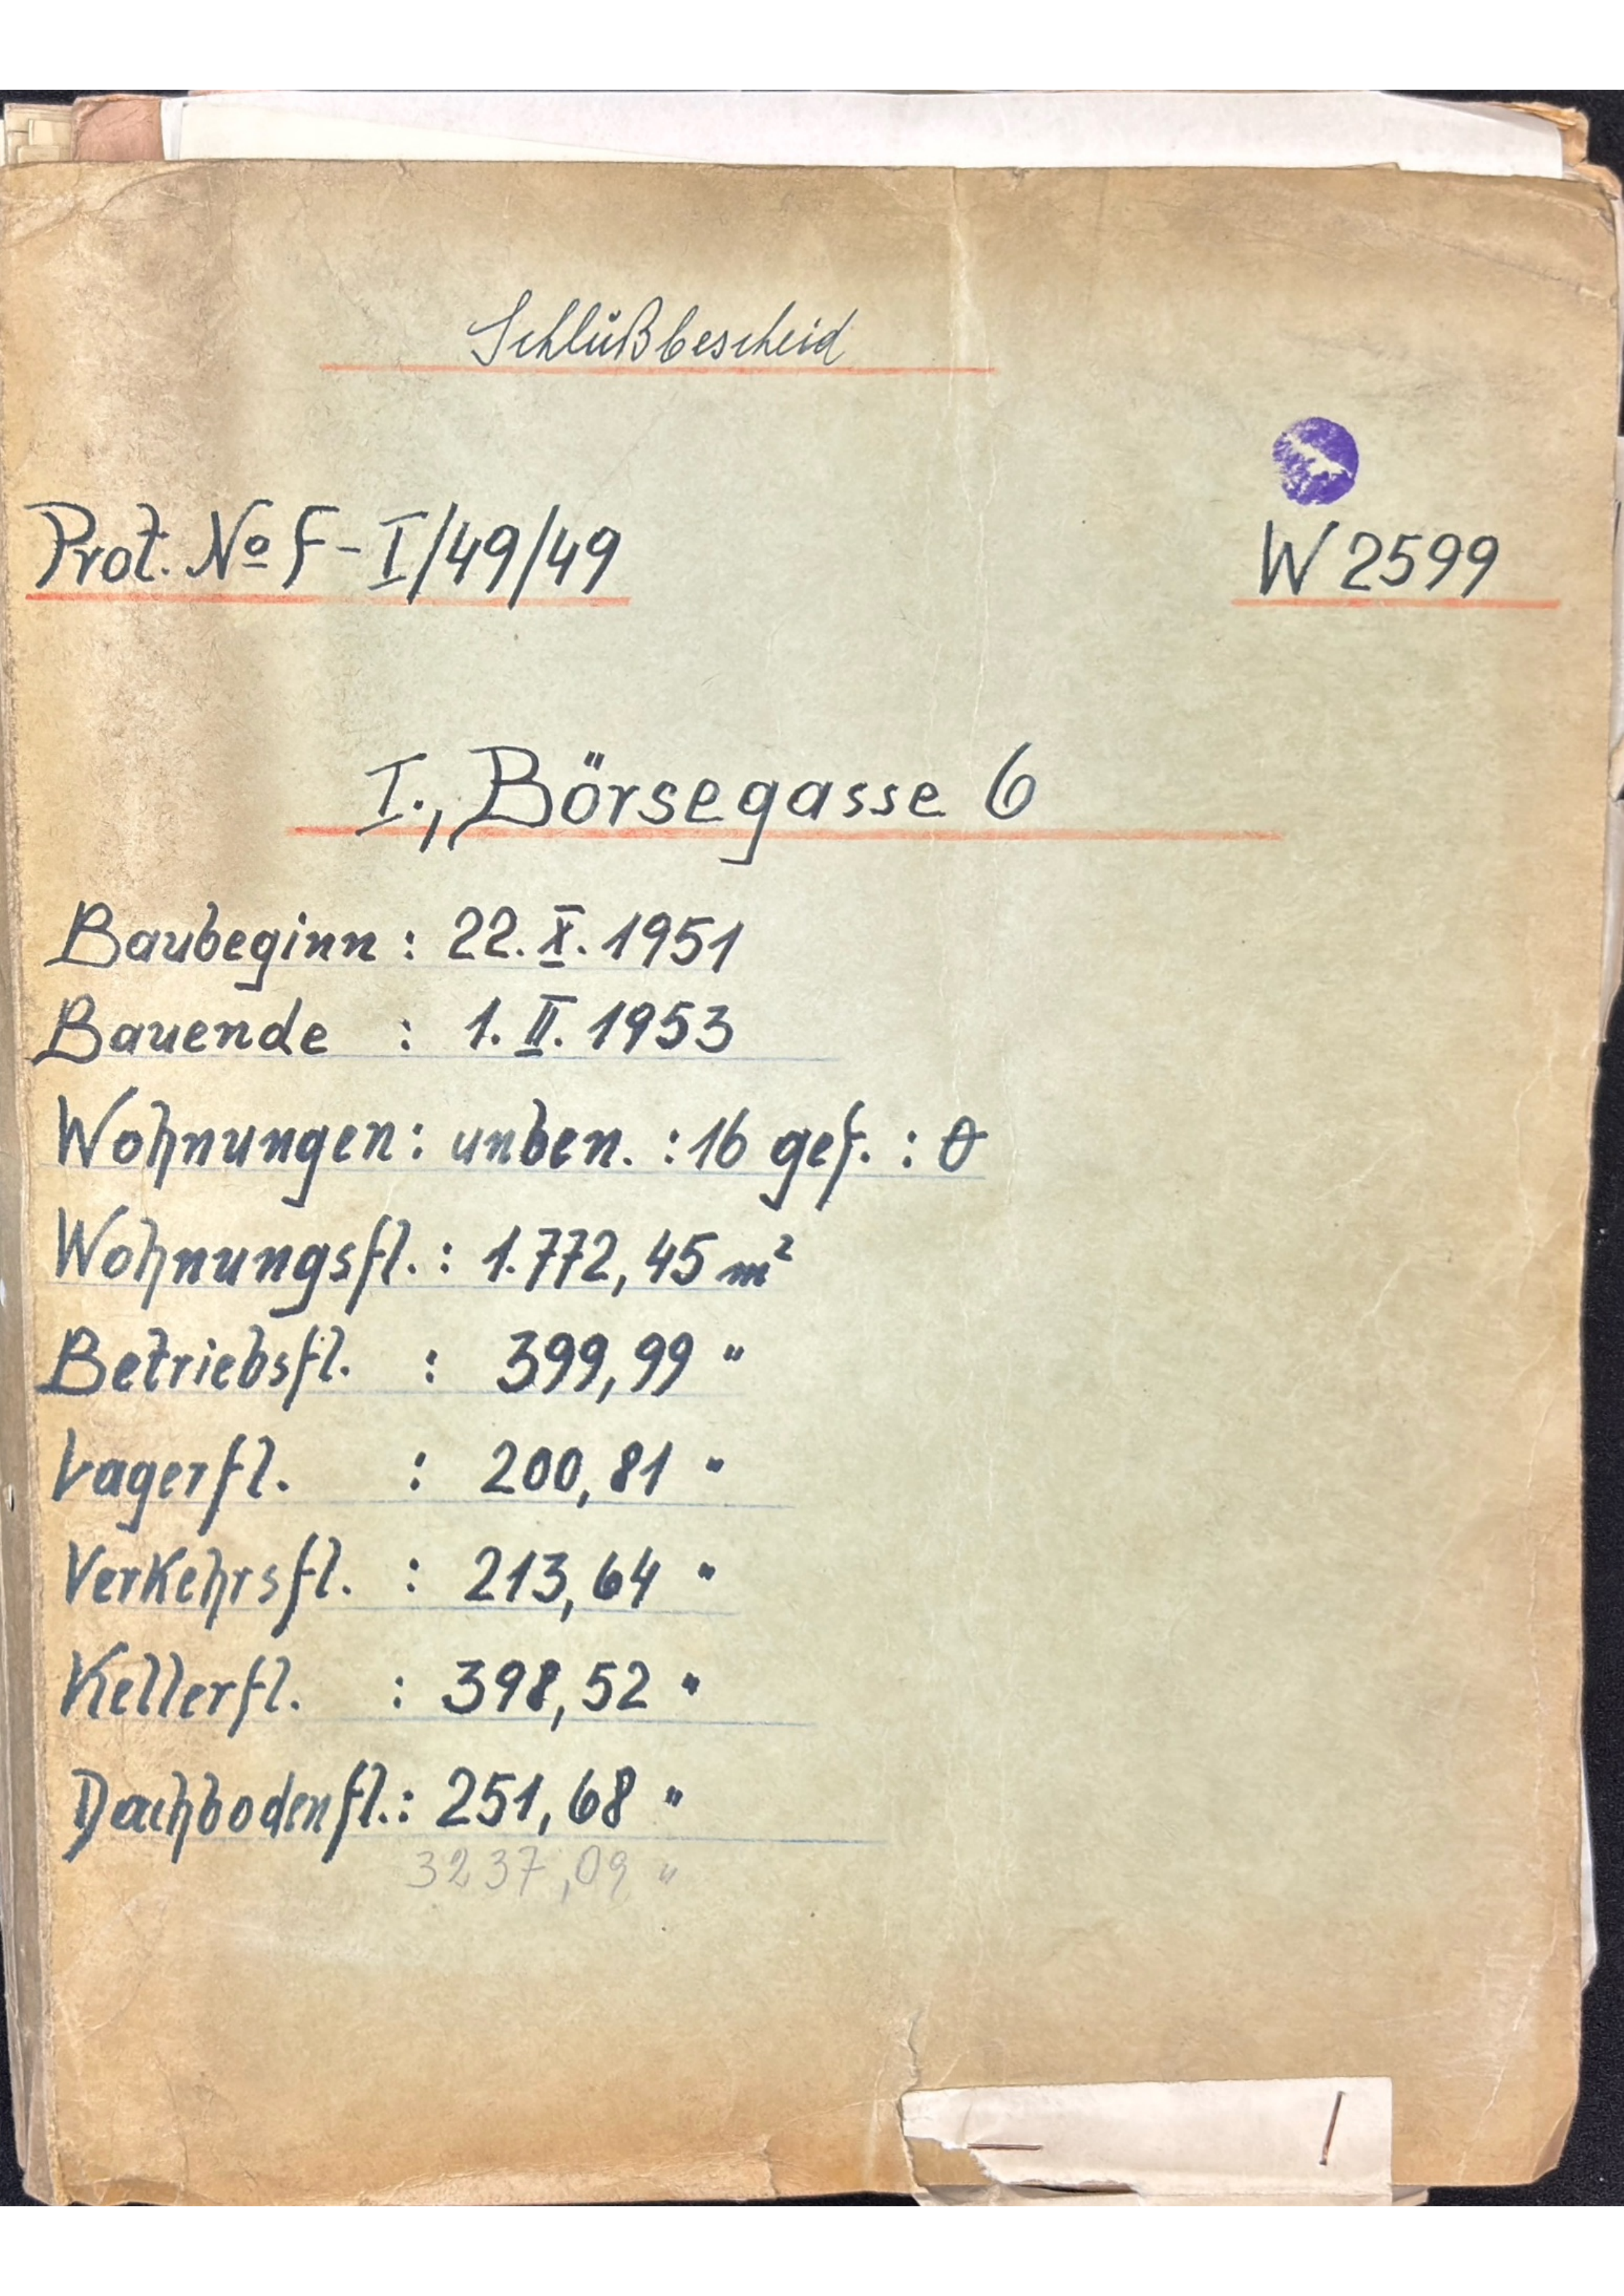 Schlußbescheid
Prot. No F-I/49/49
W 2599
I., Börsegasse 6
Baubeginn : 22. X. 1951
Bauende : 1. II. 1953
Wohnungen : unben. : 16 gef. : 0
Wohnungsfl. : 1.772,45 m²
Betriebsfl. : 399,99 "
Lagerfl. : 200,81 "
Verkehrsfl. : 213,64 "
Kellerfl. : 398,52 "
Dachbodenfl. : 251,68 "
3237,09 "